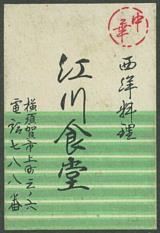 中華
西洋料理
江川食堂
横須賀市上町三ノ六
電話七八八番